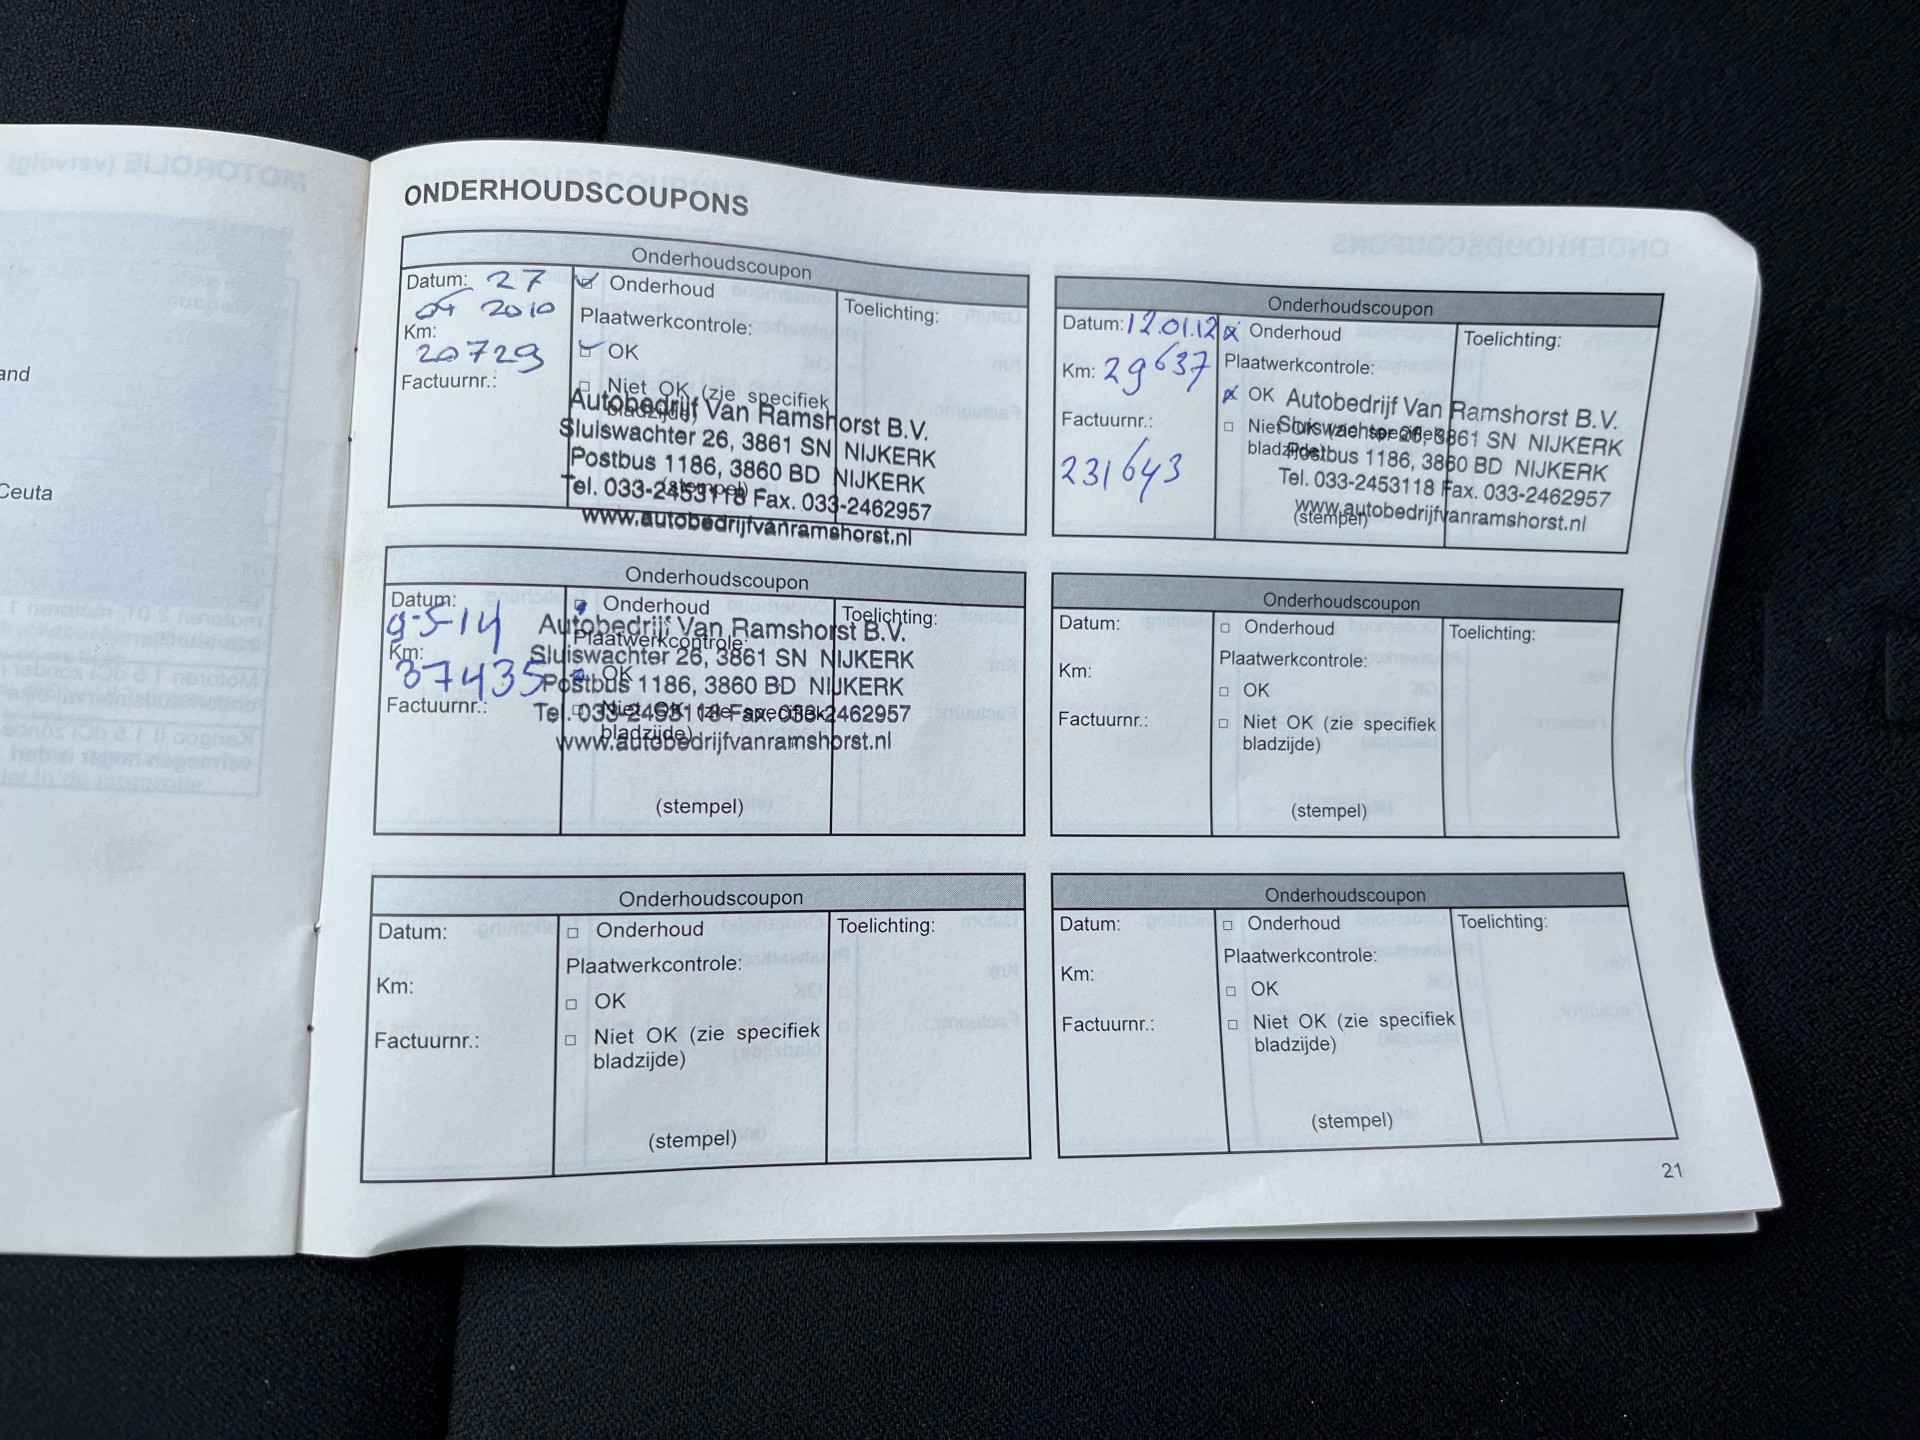 and
Ceuta
MOTOROLIE (vervolg)
ONDERHOUDSCOUPONS
Onderhoudscoupon
Datum: 27
2010
Km:
20729
Factuurnr.:
Onderhoud
Plaatwerkcontrole:
OK
Niet OK (zie specifiek
bladzijde)
(stempel)
Toelichting:
Autobedrijf Van Ramshorst B.V.
Sluiswachter 26, 3861 SN NIJKERK
Postbus 1186, 3860 BD NIJKERK
Tel. 033-2453118 Fax. 033-2462957
www.autobedrijfvanramshorst.nl
Onderhoudscoupon
Datum: 12.01.12
Km: 29637
Factuurnr.:
231643
Onderhoud
Plaatwerkcontrole:
OK
Niet OK (zie specifiek
bladzijde)
(stempel)
Toelichting:
Autobedrijf Van Ramshorst B.V.
Sluiswachter 26, 3861 SN NIJKERK
Postbus 1186, 3860 BD NIJKERK
Tel. 033-2453118 Fax. 033-2462957
www.autobedrijfvanramshorst.nl
Onderhoudscoupon
Datum:
9-5-14
Km:
37435
Factuurnr.:
Onderhoud
Plaatwerkcontrole:
OK
Niet OK (zie specifiek
bladzijde)
(stempel)
Toelichting:
Autobedrijf Van Ramshorst B.V.
Sluiswachter 26, 3861 SN NIJKERK
Postbus 1186, 3860 BD NIJKERK
Tel. 033-2453118 Fax. 033-2462957
www.autobedrijfvanramshorst.nl
Onderhoudscoupon
Datum:
Km:
Factuurnr.:
Onderhoud
Plaatwerkcontrole:
OK
Niet OK (zie specifiek
bladzijde)
(stempel)
Toelichting:
Onderhoudscoupon
Datum:
Km:
Factuurnr.:
Onderhoud
Plaatwerkcontrole:
OK
Niet OK (zie specifiek
bladzijde)
(stempel)
Toelichting:
Onderhoudscoupon
Datum:
Km:
Factuurnr.:
Onderhoud
Plaatwerkcontrole:
OK
Niet OK (zie specifiek
bladzijde)
(stempel)
Toelichting:
21